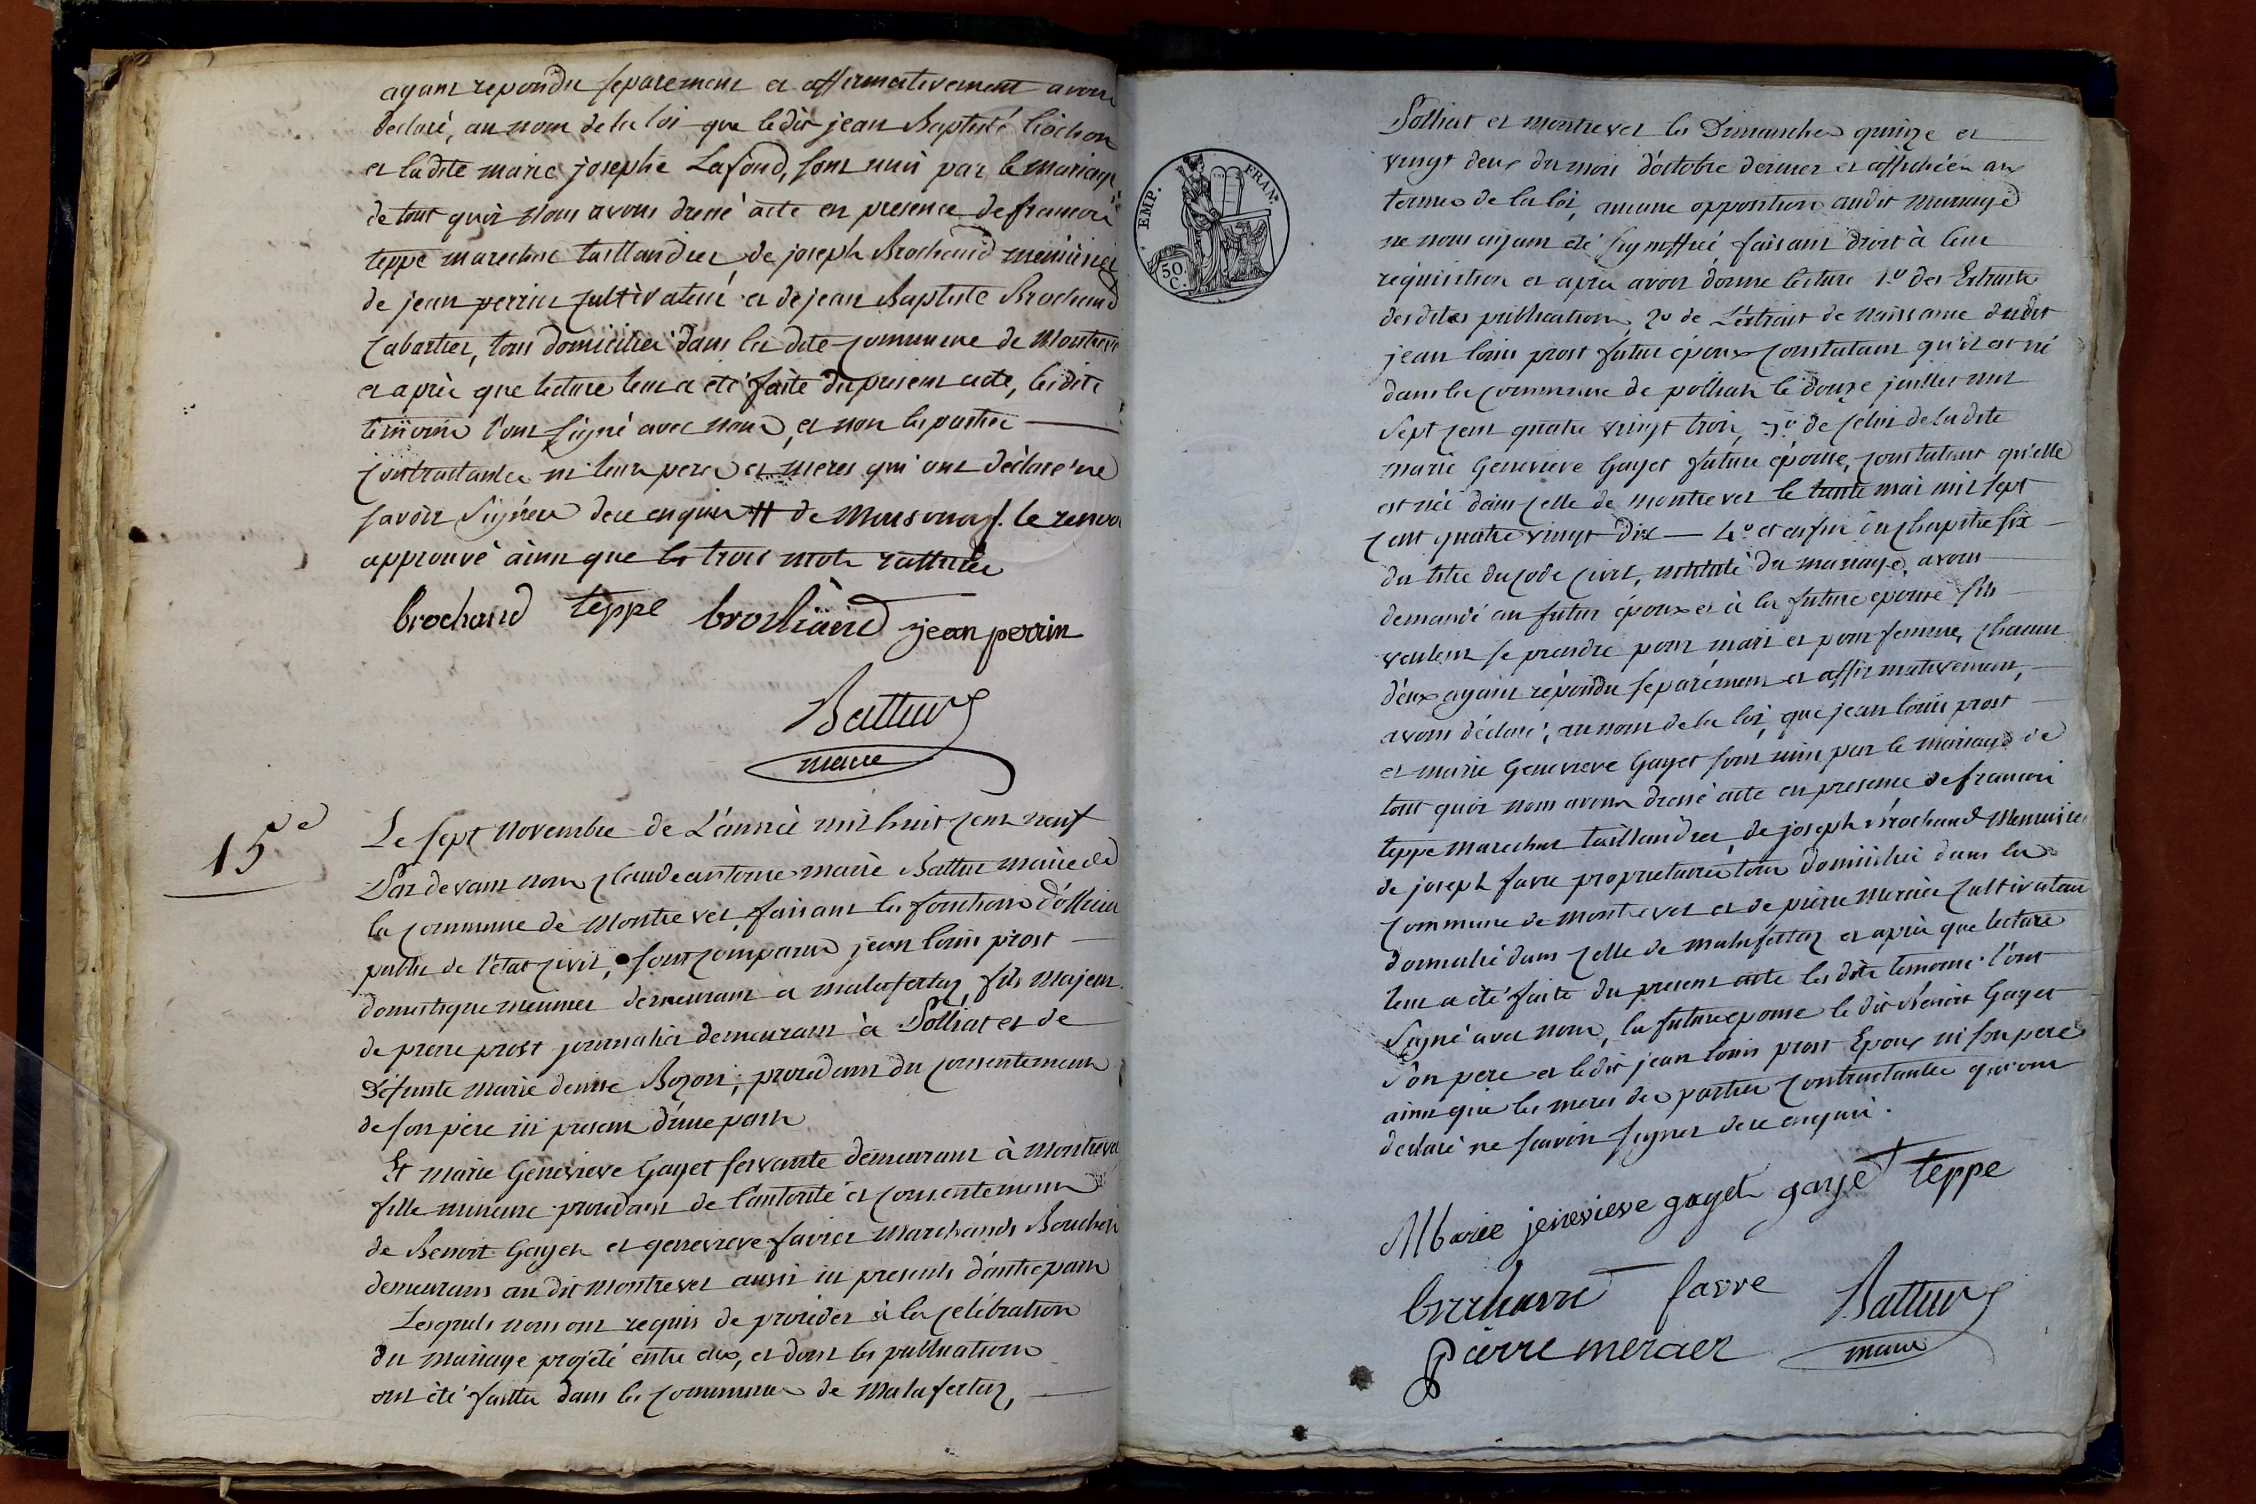 ayant repondu separement et affirmativement avons
declaré, au nom de la loi que ledit jean Baptiste
et ladite marie josephe Lafond, sont unis par le mariage
de tout quoi Nous avons dressé acte en presence de francois
teppe marechal taillandier, de joseph Brochand menuisier
de jean perrin cultivateur et de jean Baptiste Brochand
Cabartier, tous domiciliés dans la dite commune de Montrevel
et après que lecture leur a été faite du present acte, lesdits
temoins l'ont signé avec nous, et non les parties
contractantes ni leurs peres et meres qui ont déclaré ne
savoir signer de ce enquis # de Mons le renvoi
approuvé ainsi que les trois mots rattures
brochand teppe brochand jean perrin
Battur
maire
15e
Le sept Novembre de L'année mil huit cent neuf
Par devant nous Claude antoine marie Battur maire de
la commune de Montrevel, faisant les fonctions d'officier
public de l'état civil, sont comparus jean louis prost
domestique meunier demeurant a malafretaz, fils majeur
de pierre prost journalier demeurant à Polliat et de
défunte marie denise Bozon, procédant du consentement
de son père ici present d'une part
Et marie Genevieve Gayet servante demeurant à montrevel
fille mineure procédant de l'autorité et consentement
de Benoit Gayet et genevieve favier marchands Bouchers
demeurans au dit montrevel aussi ici presents d'autre part
Lesquels nous ont requis de procéder à la célébration
du mariage projeté entre eux, et dont les publications
ont été faites dans les communes de Malafretaz,
EMP. FRAN.
50 C.
Polliat et montrevel les Dimanches quinze et
vingt deux du mois d'octobre dernier et affichées aux
termes de la loi, aucune opposition audit mariage
ne nous ayant été signiffiée faisant droit à leur
réquisition et après avoir donné lecture 1º des Extraits
desdites publications, 2º de L'extrait de naissance dudit
jean louis prost futur époux constatant qu'il est né
dans la commune de polliat le douze juillet mil
sept cent quatre vingt trois, 3º de celui de ladite
marie Genevieve Gayet future épouse, constatant qu'elle
est née dans celle de montrevel le trente mai mil sept
cent quatre vingt dix — 4º et enfin du chapitre six
du titre du code civil, intitulé du mariage, avons
demandé au futur époux et à la future epouse s'ils
veulent se prendre pour mari et pour femme, chacun
d'eux ayant répondu separement et affirmativement,
avons déclaré, au nom de la loi, que jean louis prost
et marie Genevieve Gayet sont unis par le mariage de
tout quoi nous avons dressé acte en presence de francois
teppe marechal taillandier, de joseph Brochand Menuisier
de joseph favre proprietaire tous domiciliés dans la
commune de montrevel et de pierre Mercier cultivateur
domicilié dans celle de malafretaz et après que lecture
leur a été faite du present acte lesdits temoins l'ont
signé avec nous, la future epouse le dit Benoit Gayet
son pere et ledit jean louis prost Epoux ni son pere
ainsi que les meres des parties contractantes qui ont
declaré ne savoir signer de ce enquis.
Marie jenevieve gayet gayet teppe
brochand favre Battur
pierre mercier maire